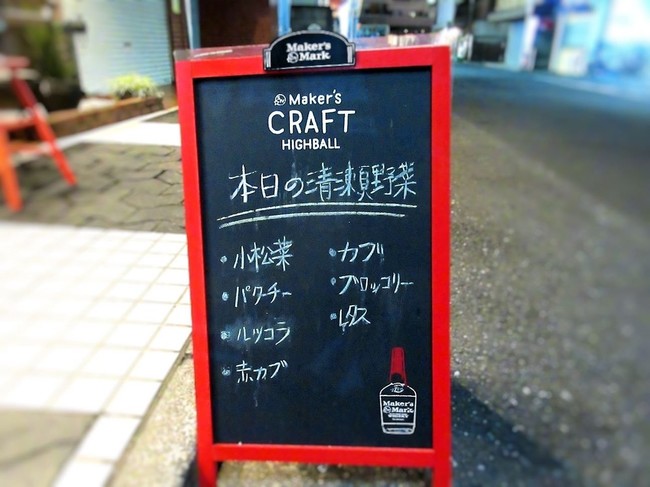 Maker's
Mark
Maker's
CRAFT
HIGHBALL
本日の清瀬野菜
・小松菜
・パクチー
・ルッコラ
・赤カブ
・カブ
・ブロッコリー
・レタス
Maker's
Mark